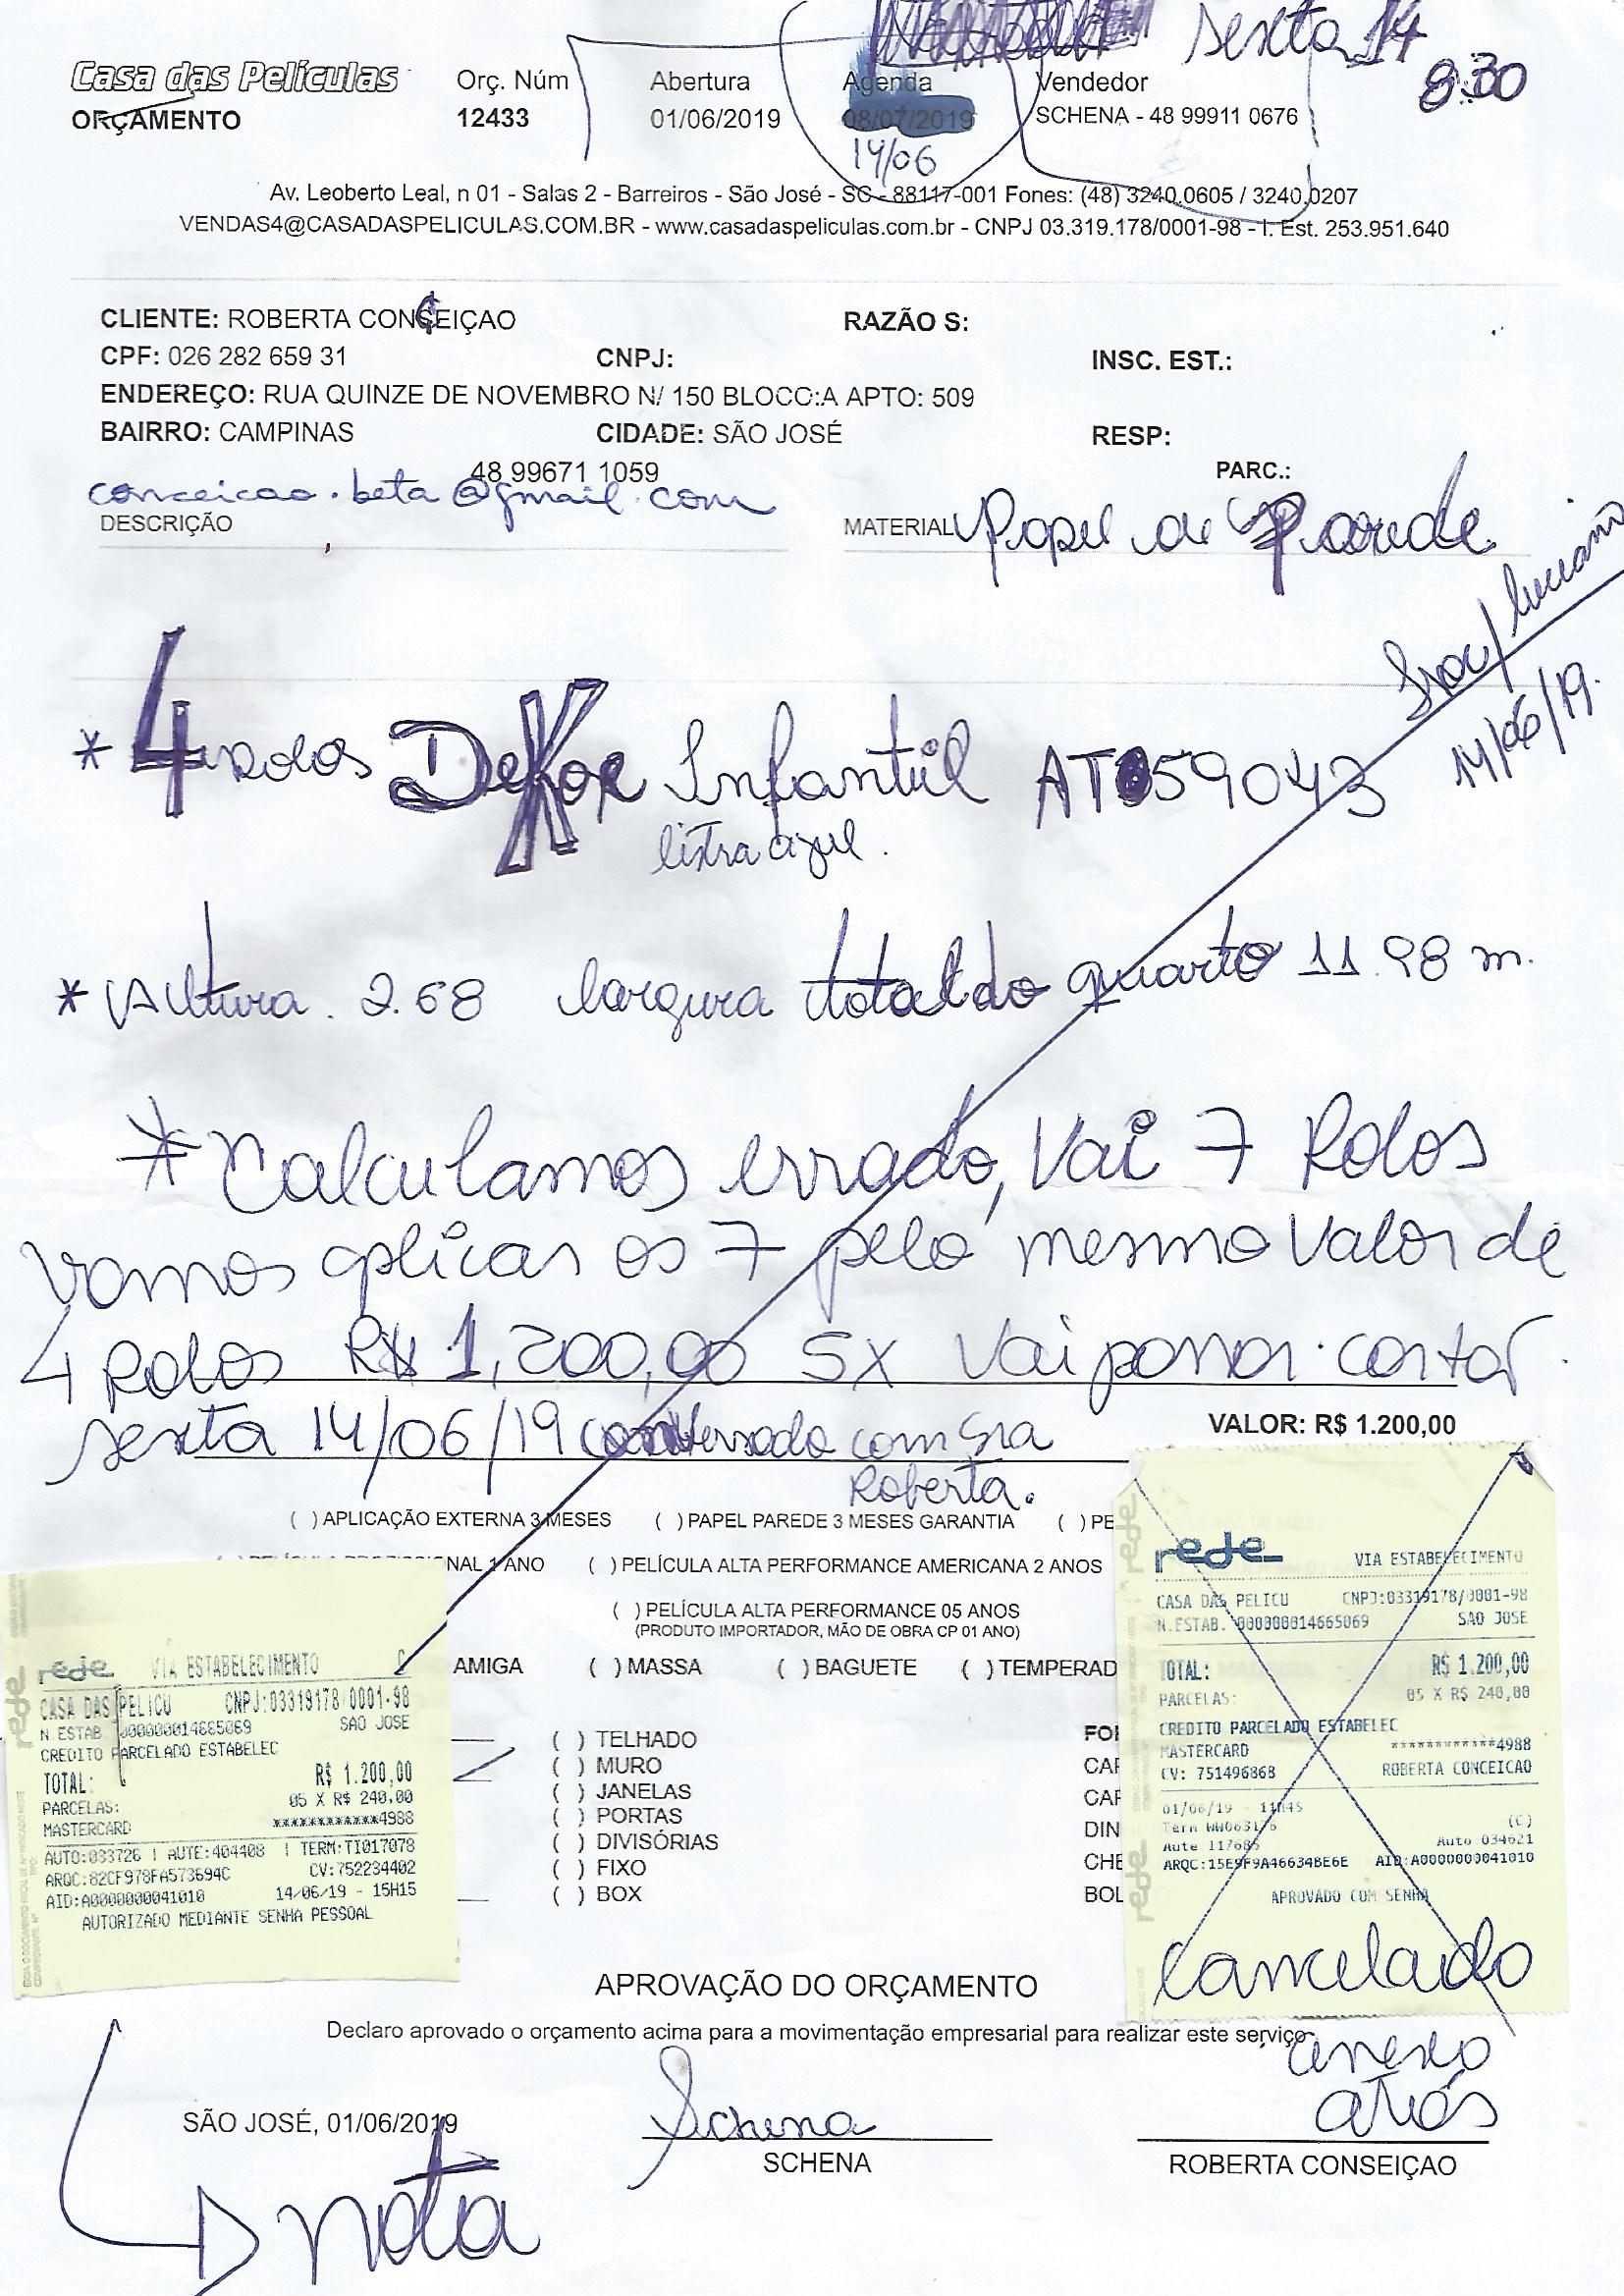 sexta 14
8:30
Casa das Películas
ORÇAMENTO
Orç. Núm
12433
Abertura
01/06/2019
Agenda
08/07/2019
14/06
Vendedor
SCHENA - 48 99911 0676
Av. Leoberto Leal, n 01 - Salas 2 - Barreiros - São José - SC - 88117-001 Fones: (48) 3240.0605 / 3240.0207
VENDAS4@CASADASPELICULAS.COM.BR - www.casadaspeliculas.com.br - CNPJ 03.319.178/0001-98 - I. Est. 253.951.640
CLIENTE: ROBERTA CONCEIÇAO
RAZÃO S:
CPF: 026 282 659 31
CNPJ:
INSC. EST.:
ENDEREÇO: RUA QUINZE DE NOVEMBRO N/ 150 BLOCO:A APTO: 509
BAIRRO: CAMPINAS
CIDADE: SÃO JOSÉ
RESP:
48 99671 1059
PARC.:
conceicao.beta@gmail.com
DESCRIÇÃO
MATERIAL Papel de Parede
Luciano
14/06/19.
* 4 Rolos DeKor Infantil AT059043
listra azul.
* Altura. 2.68 largura total do quarto 11.98 m.
* Calculamos errado, Vai 7 Rolos
vamos aplicar os 7 pelo mesmo valor de
4 Rolos R$ 1,200,00 5X Vai passar cartar
sexta 14/06/19 conversado com Sra
Roberta.
VALOR: R$ 1.200,00
( ) APLICAÇÃO EXTERNA 3 MESES ( ) PAPEL PAREDE 3 MESES GARANTIA ( ) PE
NAL 1 ANO ( ) PELÍCULA ALTA PERFORMANCE AMERICANA 2 ANOS
( ) PELÍCULA ALTA PERFORMANCE 05 ANOS
(PRODUTO IMPORTADOR, MÃO DE OBRA CP 01 ANO)
AMIGA ( ) MASSA ( ) BAGUETE ( ) TEMPERAD
( ) TELHADO
( ) MURO
( ) JANELAS
( ) PORTAS
( ) DIVISÓRIAS
( ) FIXO
( ) BOX
FOI
CAF
CAF
DIN
CHE
BOL
rede VIA ESTABELECIMENTO
CASA DAS PELICU CNPJ:03319178/0001-98
N.ESTAB 000000014665069 SAO JOSE
CREDITO PARCELADO ESTABELEC
TOTAL: R$ 1.200,00
PARCELAS: 05 X R$ 240,00
MASTERCARD ************4988
AUTO:033726 | AUTE:404408 | TERM:TI017078
ARQC:82CF978FA573694C CV:752234402
AID:A0000000041010 14/06/19 - 15H15
AUTORIZADO MEDIANTE SENHA PESSOAL
rede VIA ESTABELECIMENTO
CASA DAS PELICU CNPJ:03319178/0001-98
N.ESTAB. 000000014665069 SAO JOSE
TOTAL: R$ 1.200,00
PARCELAS: 05 X R$ 240,00
CREDITO PARCELADO ESTABELEC
MASTERCARD ************4988
CV: 751496868 ROBERTA CONCEICAO
01/06/19 - 11H45 (C)
Aute 117685 Auto 034621
AID:A0000000041010
APROVADO COM SENHA
Cancelado
anexo
atrás
APROVAÇÃO DO ORÇAMENTO
Declaro aprovado o orçamento acima para a movimentação empresarial para realizar este serviço
SÃO JOSÉ, 01/06/2019
Schena
SCHENA
ROBERTA CONSEIÇAO
nota